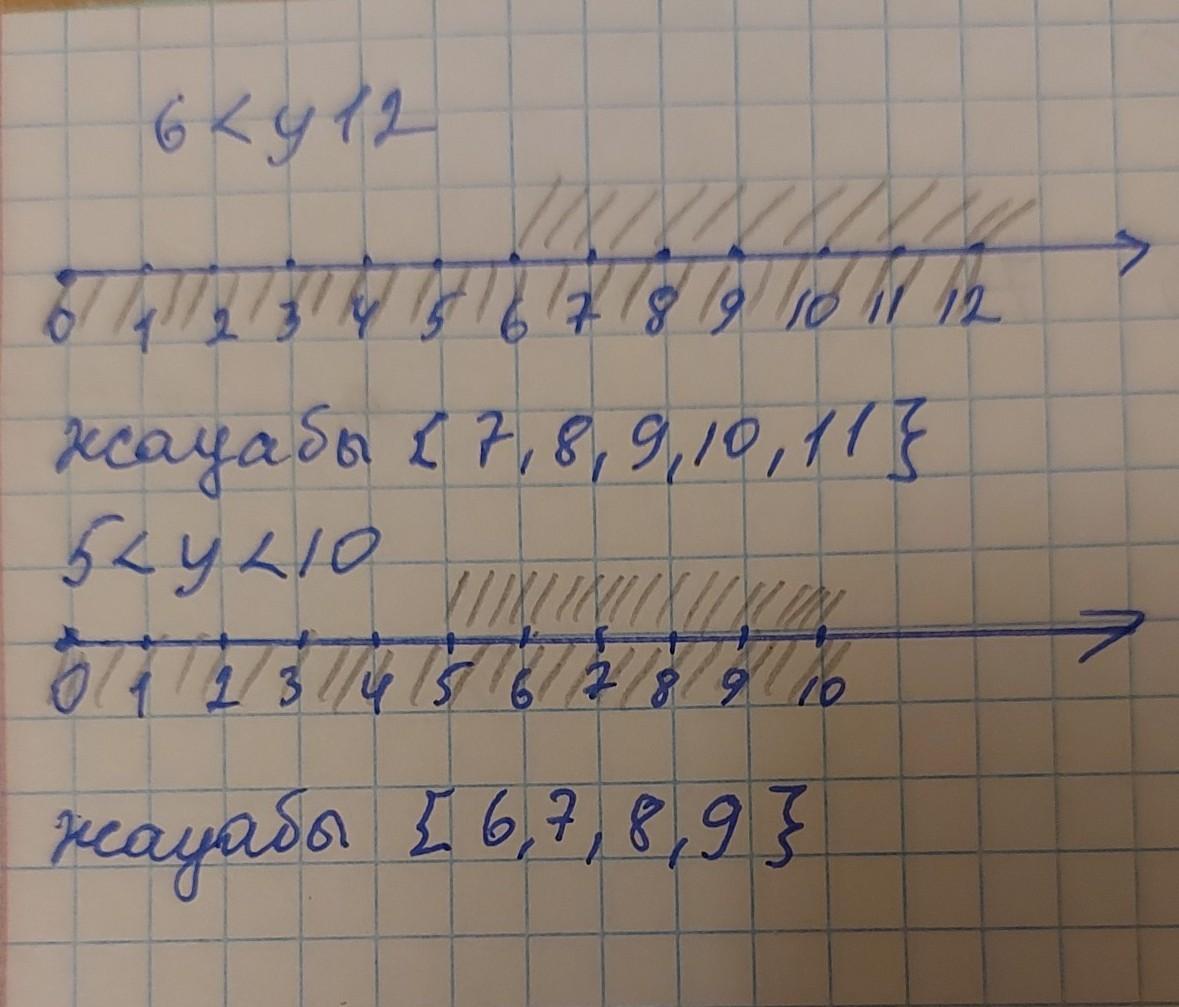 6 < y 12
0 1 2 3 4 5 6 7 8 9 10 11 12
жауабы { 7, 8, 9, 10, 11 }
5 < y < 10
0 1 2 3 4 5 6 7 8 9 10
жауабы { 6, 7, 8, 9 }